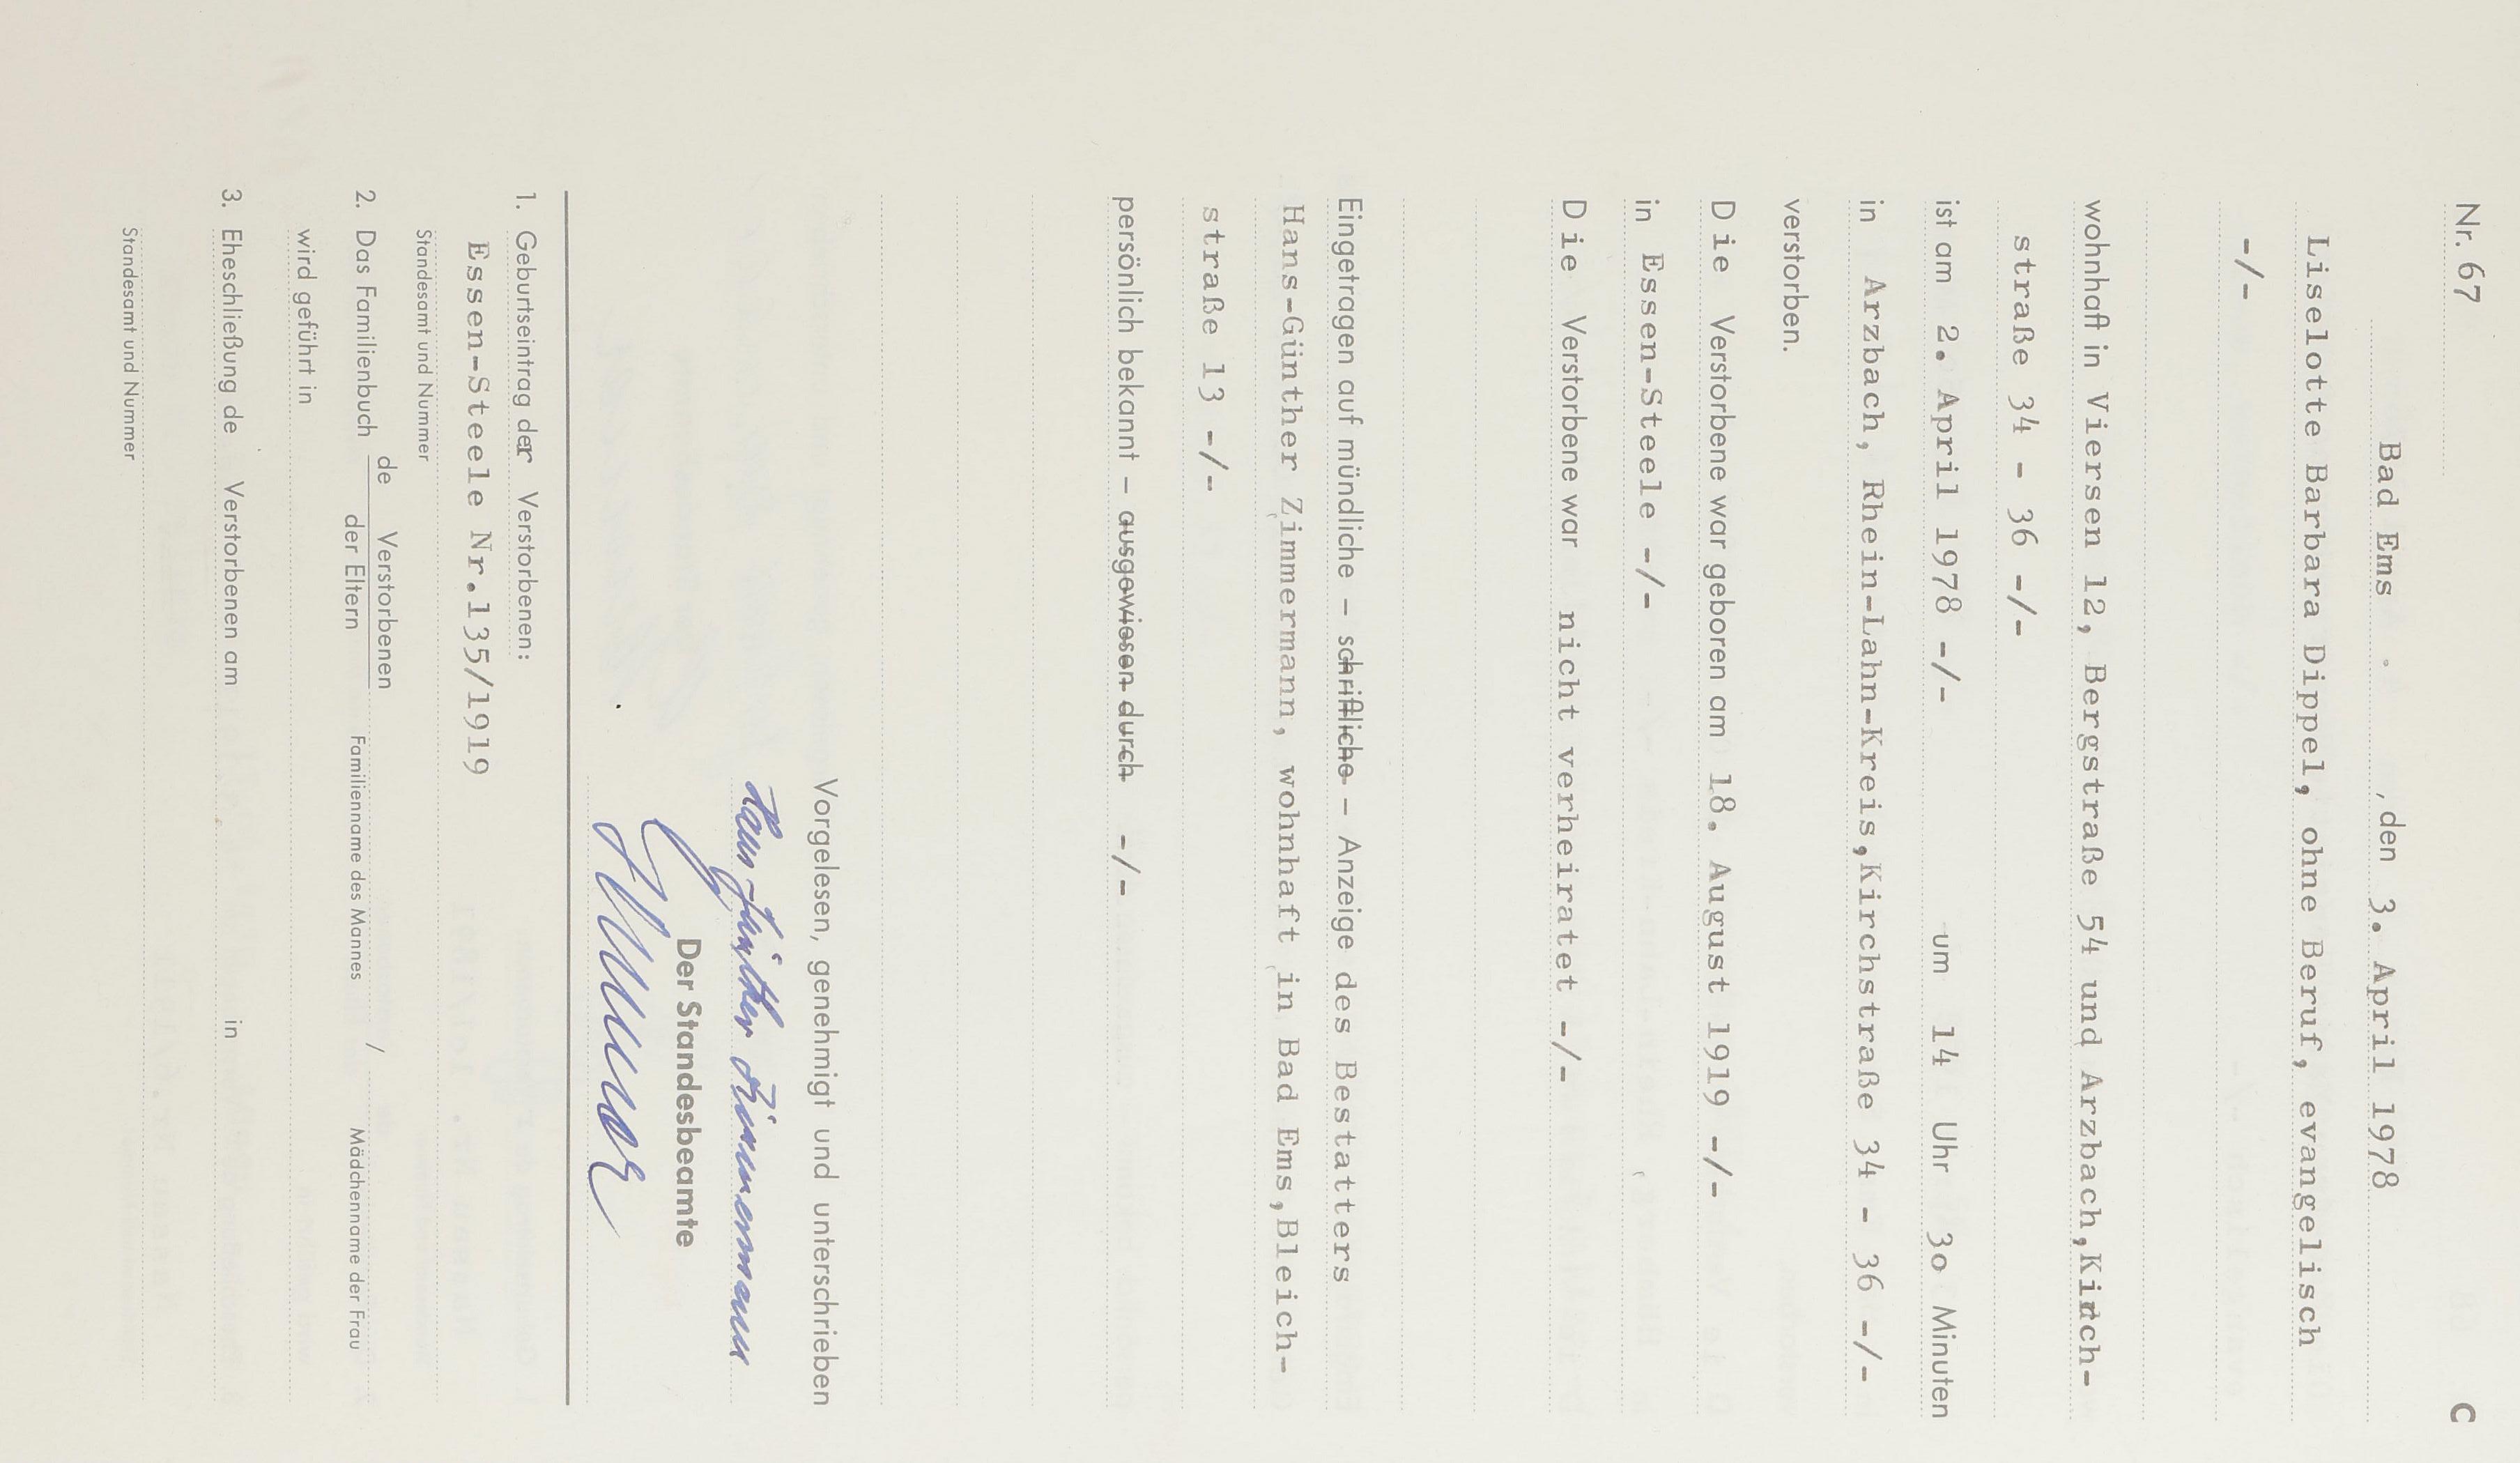 Nr. 67 C
Bad Ems , den 3. April 1978
Liselotte Barbara Dippel, ohne Beruf, evangelisch
-/-
wohnhaft in Viersen 12, Bergstraße 54 und Arzbach,Kirch-
straße 34 - 36 -/-
ist am 2. April 1978 -/- um 14 Uhr 3o Minuten
in Arzbach, Rhein-Lahn-Kreis,Kirchstraße 34 - 36 -/-
verstorben.
Die Verstorbene war geboren am 18. August 1919 -/-
in Essen-Steele -/-
Die Verstorbene war nicht verheiratet -/-
Eingetragen auf mündliche – schriftliche – Anzeige des Bestatters
Hans-Günther Zimmermann, wohnhaft in Bad Ems,Bleich-
straße 13 -/-
persönlich bekannt – ausgewiesen durch -/-
Vorgelesen, genehmigt und unterschrieben
Hans-Günther Zimmermann
Der Standesbeamte
1. Geburtseintrag der Verstorbenen:
Essen-Steele Nr.135/1919
Standesamt und Nummer
2. Das Familienbuch de Verstorbenen / der Eltern
Familienname des Mannes Mädchenname der Frau
wird geführt in
3. Eheschließung de Verstorbenen am in
Standesamt und Nummer